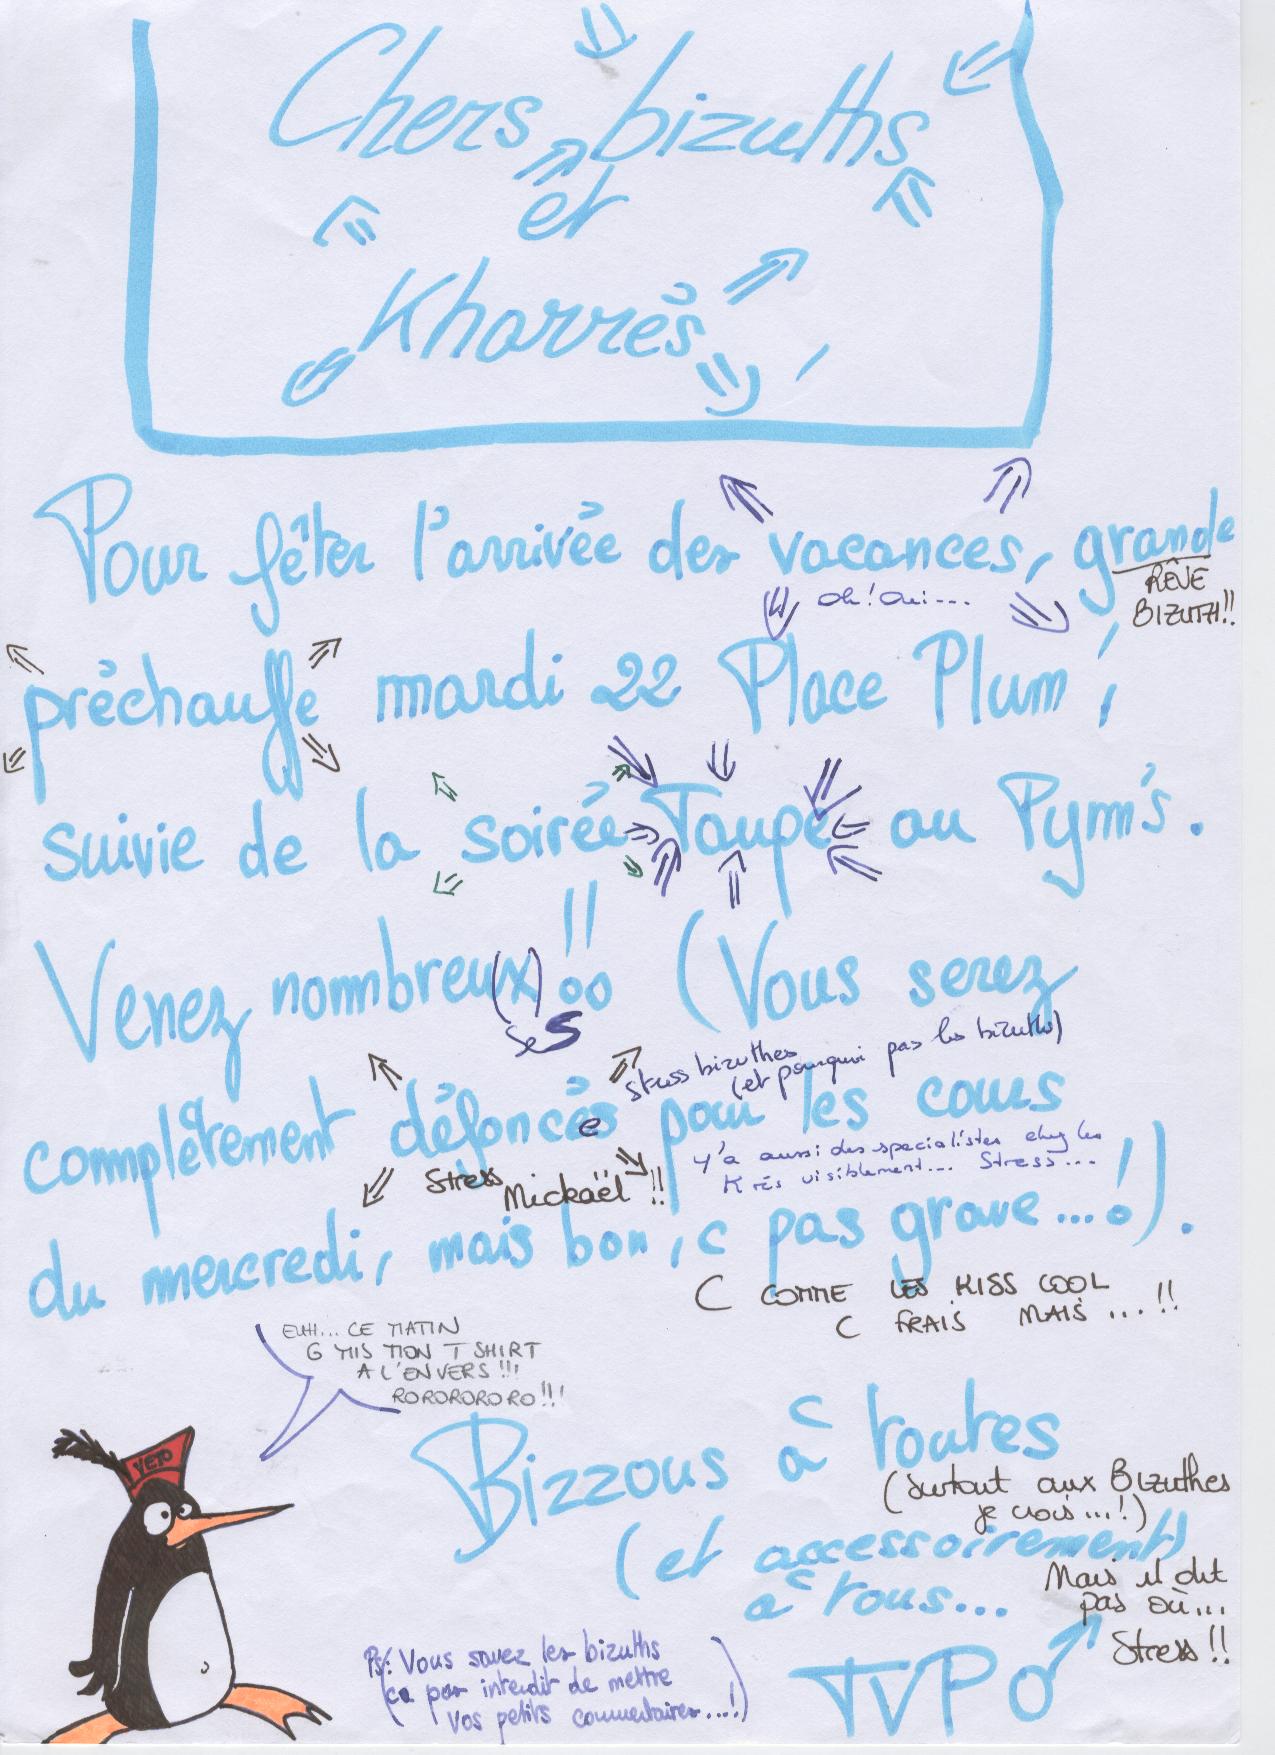 Chers bizuths
et
Kharrés !
Pour fêter l'arrivée des vacances, grande
oh! oui...
RÊVE
BIZUTH!!
préchauffe mardi 22 Place Plum !
suivie de la soirée Taupe au Pym's.
Venez nombreu(x) !!
ses
(Vous serez
stress bizuthes
(et pourquoi pas les bizuths)
complètement défoncés pour les cours
e
Stress
Mickaël !!
Y'a aussi des specialistes chez les
K rés visiblement... Stress...
du mercredi, mais bon, c pas grave...!).
C COMME LES KISS COOL
C FRAIS MAIS...!!
EUH... CE MATIN
G MIS MON T SHIRT
A L'ENVERS !!!
RORORORORO!!!
VETO
Bizzous à toutes
(surtout aux Bizuthes
je crois...!)
(et accessoirement)
à tous...
Mais il dit
pas où...
Stress !!
TVPO
Ps: Vous savez les bizuths
(ca pas interdit de mettre
vos petits commentaires...!)